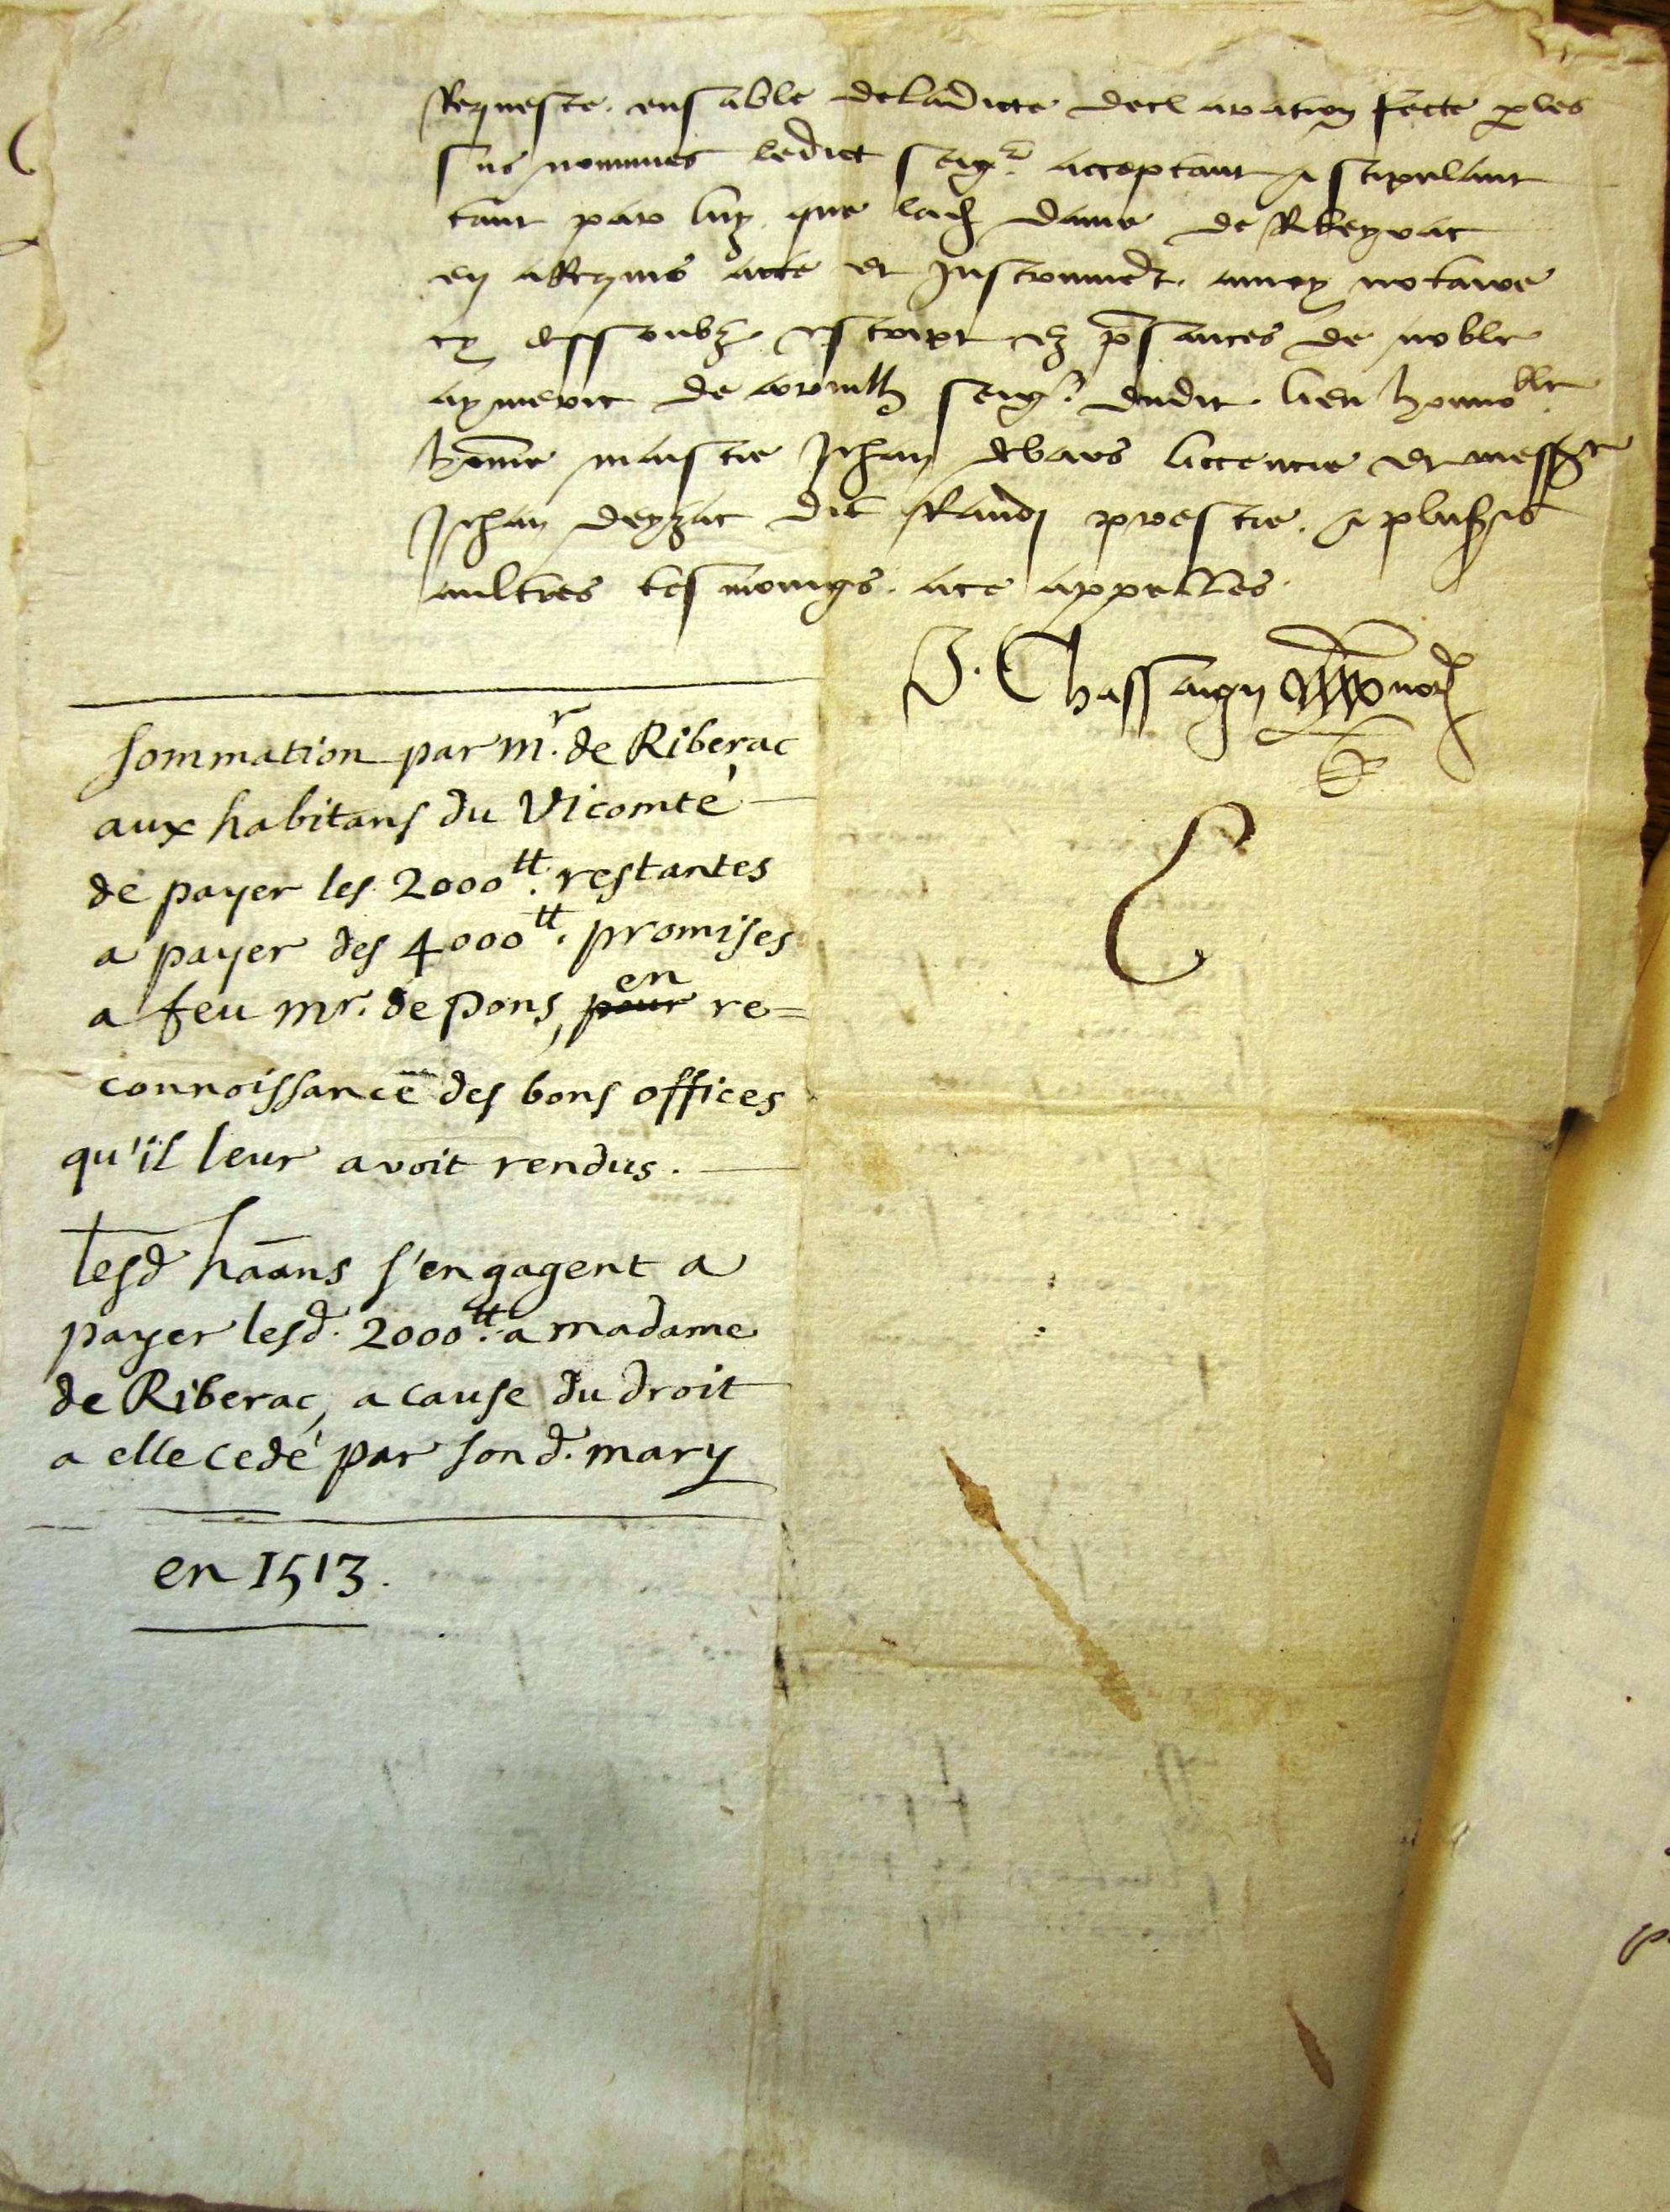 Requeste ensable de ladicte declaration fecte p les
sus nommes ledict seigr acceptant & stipulant
tant par luy que lad dame de Rbeyrac
en a Requis acte et Instrumt a moy notaire
cy dessoubz escript ez psances de noble
aymeric de seigr dudit lieu honnoble
home maistre Jehan debars liccencie et messre
Jehan deyzac dit prestre & plusrs
aultres tesmoings ace appelles
J. Chassaign nore
Sommation par mr. de Riberac
aux habitans du Vicomté
de payer les 2000tt. restantes
a payer des 4000tt. promises
a feu mr. de pons, pour en re=
connoissance des bons offices
qu'il leur avoit rendus.
lesd haans s'engagent a
payer lesd. 2000tt. a madame
de Riberac, a cause du droit
a elle cedé par son d. mary
en 1513.